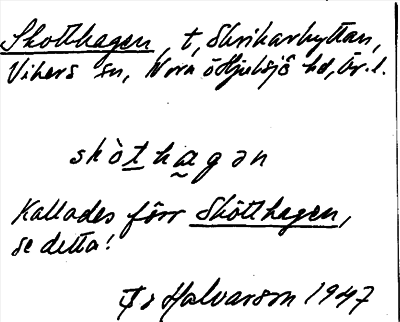 Skotthagen, t, Skrikarhyttan,
Vikers sn, Nora o Hjulsjö hd, Ör. l.
skòt hagən
Kallades förr Skötthagen,
se detta!
Halvarson 1947